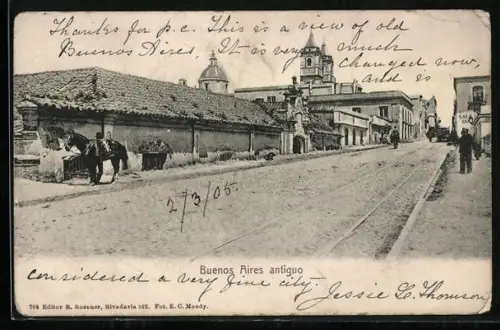 Thanks for p.c. This is a view of old
Buenos Aires. It is very much
changed now,
and is
2/3/05
Buenos Aires antiguo
considered a very fine city. Jessie L. Thomson.
704 Editor R. Rosauer, Rivadavia 522. Fot. E. C. Moody.